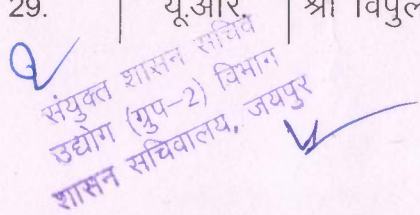 29. यू.आर. श्री विपुल
संयुक्त शासन सचिव
उद्योग (ग्रुप-2) विभाग
शासन सचिवालय, जयपुर